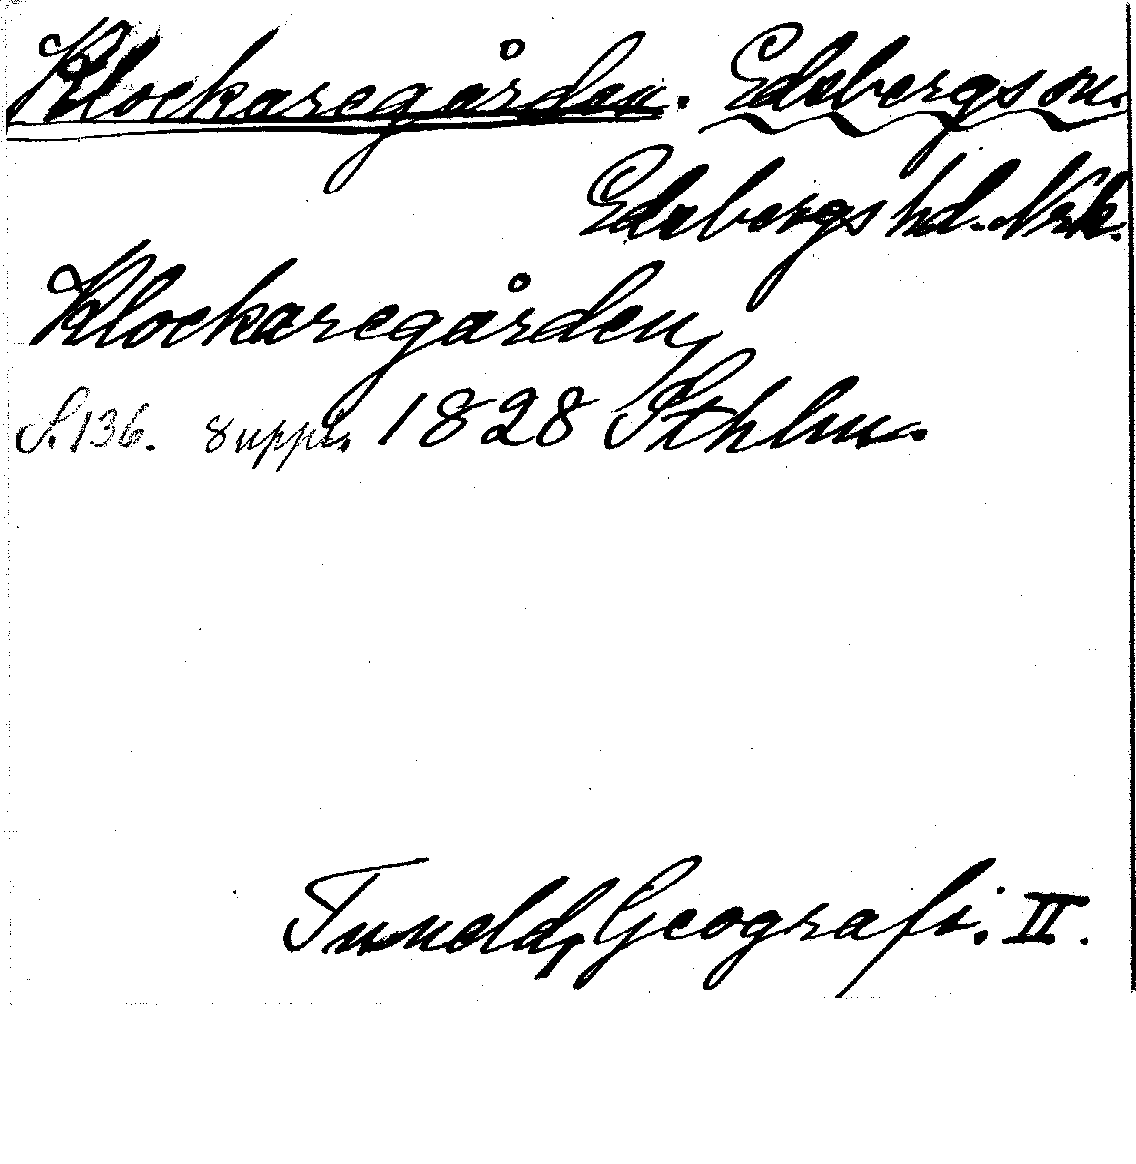 Klockaregården. Edsbergs sn.
Edsbergs hd. Nrk.
Klockaregården,
S. 136. 8 uppl. 1828 Sthlm.
Tuneld, Geografi. II.